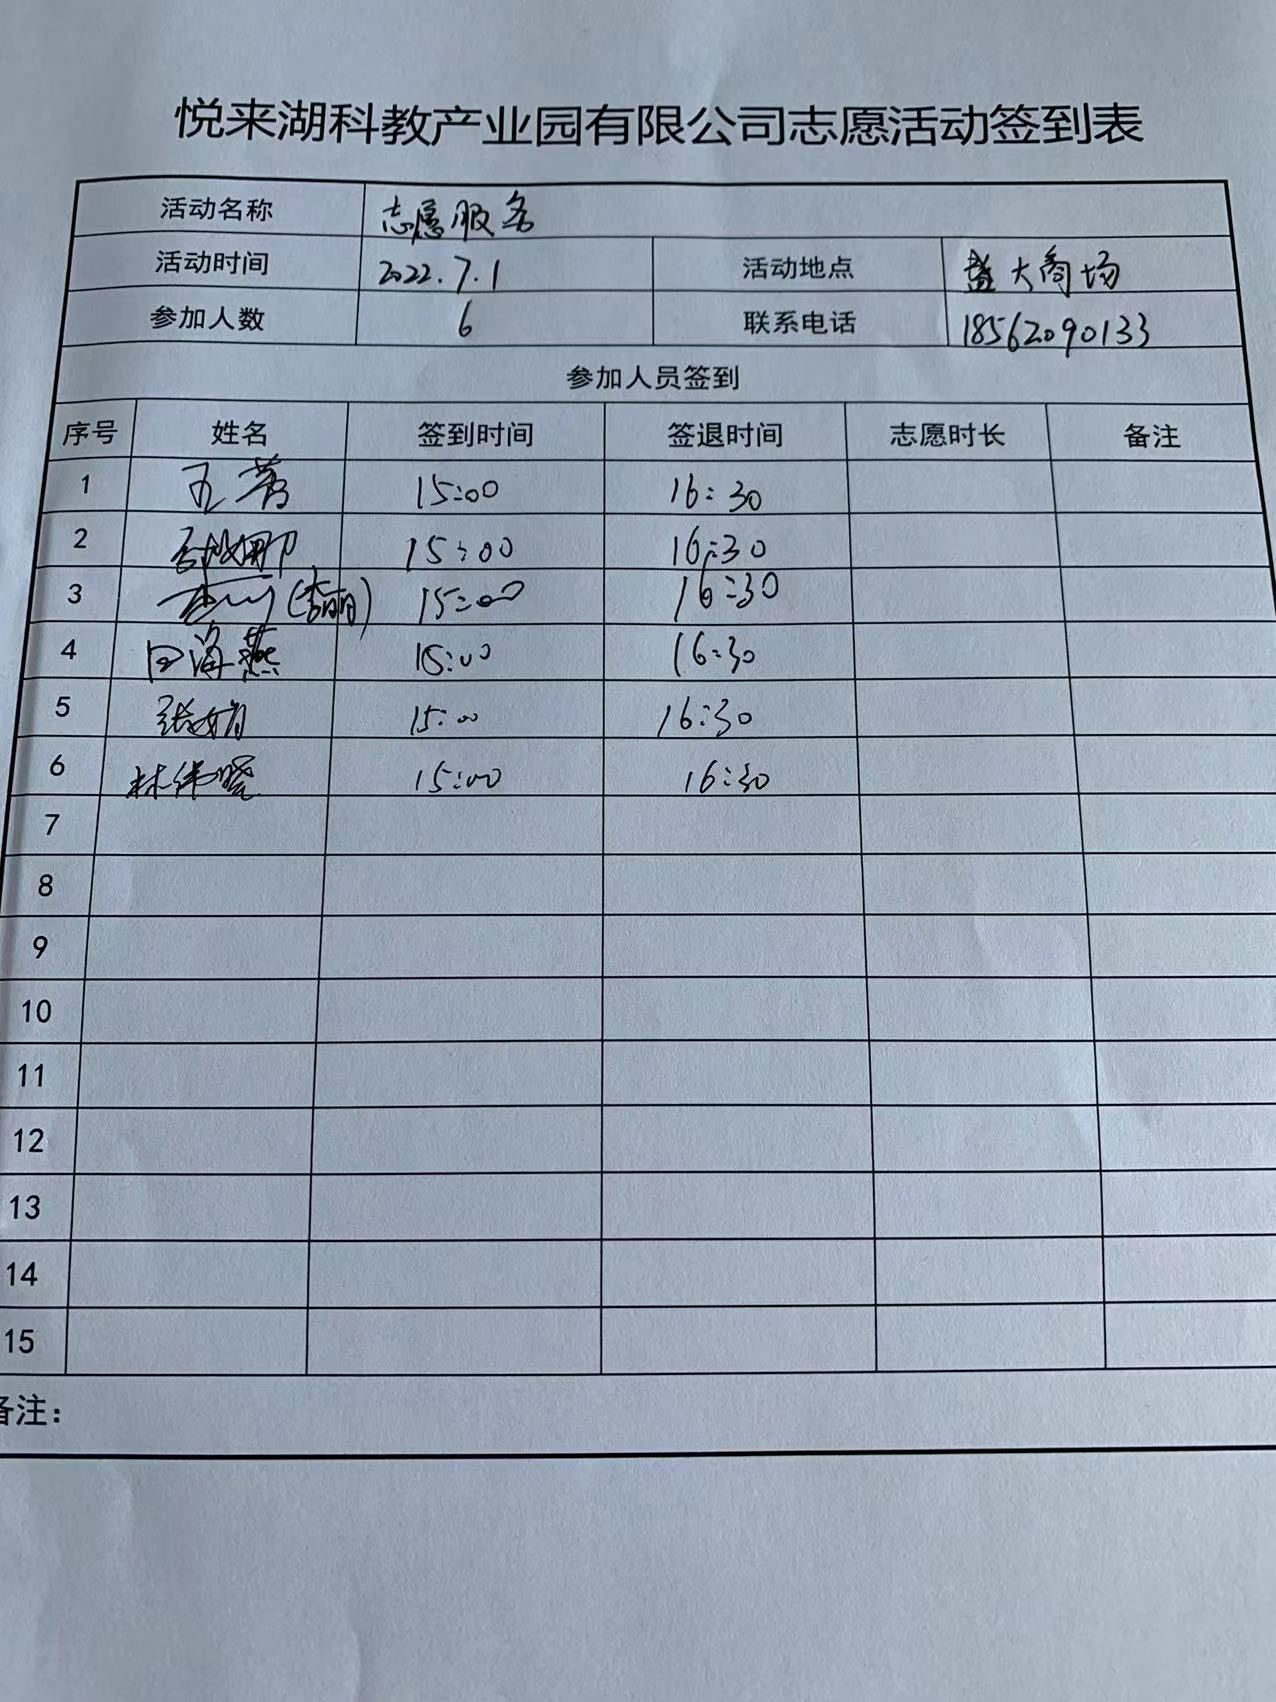 悦来湖科教产业园有限公司志愿活动签到表
活动名称 志愿服务
活动时间 2022.7.1 活动地点 盛大商场
参加人数 6 联系电话 18562090133
参加人员签到
序号 姓名 签到时间 签退时间 志愿时长 备注
1 15:00 16:30
2 15:00 16:30
3 (李丽) 15:00 16:30
4 田海燕 15:00 16:30
5 张娟 15:00 16:30
6 林伟晓 15:00 16:30
7
8
9
10
11
12
13
14
15
备注：